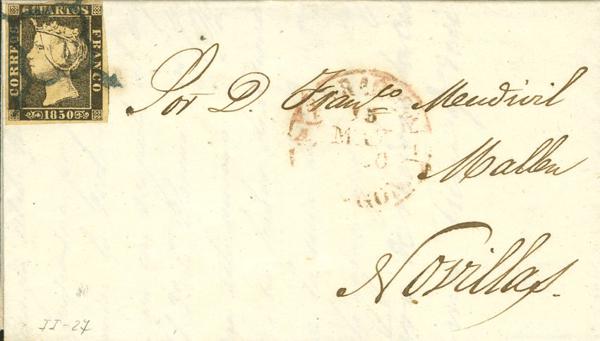 6 CUARTOS
CORREOS
FRANCO
1850
Por D. Franco Mendivil
Mallen
Novillas.
15
GON
II-27